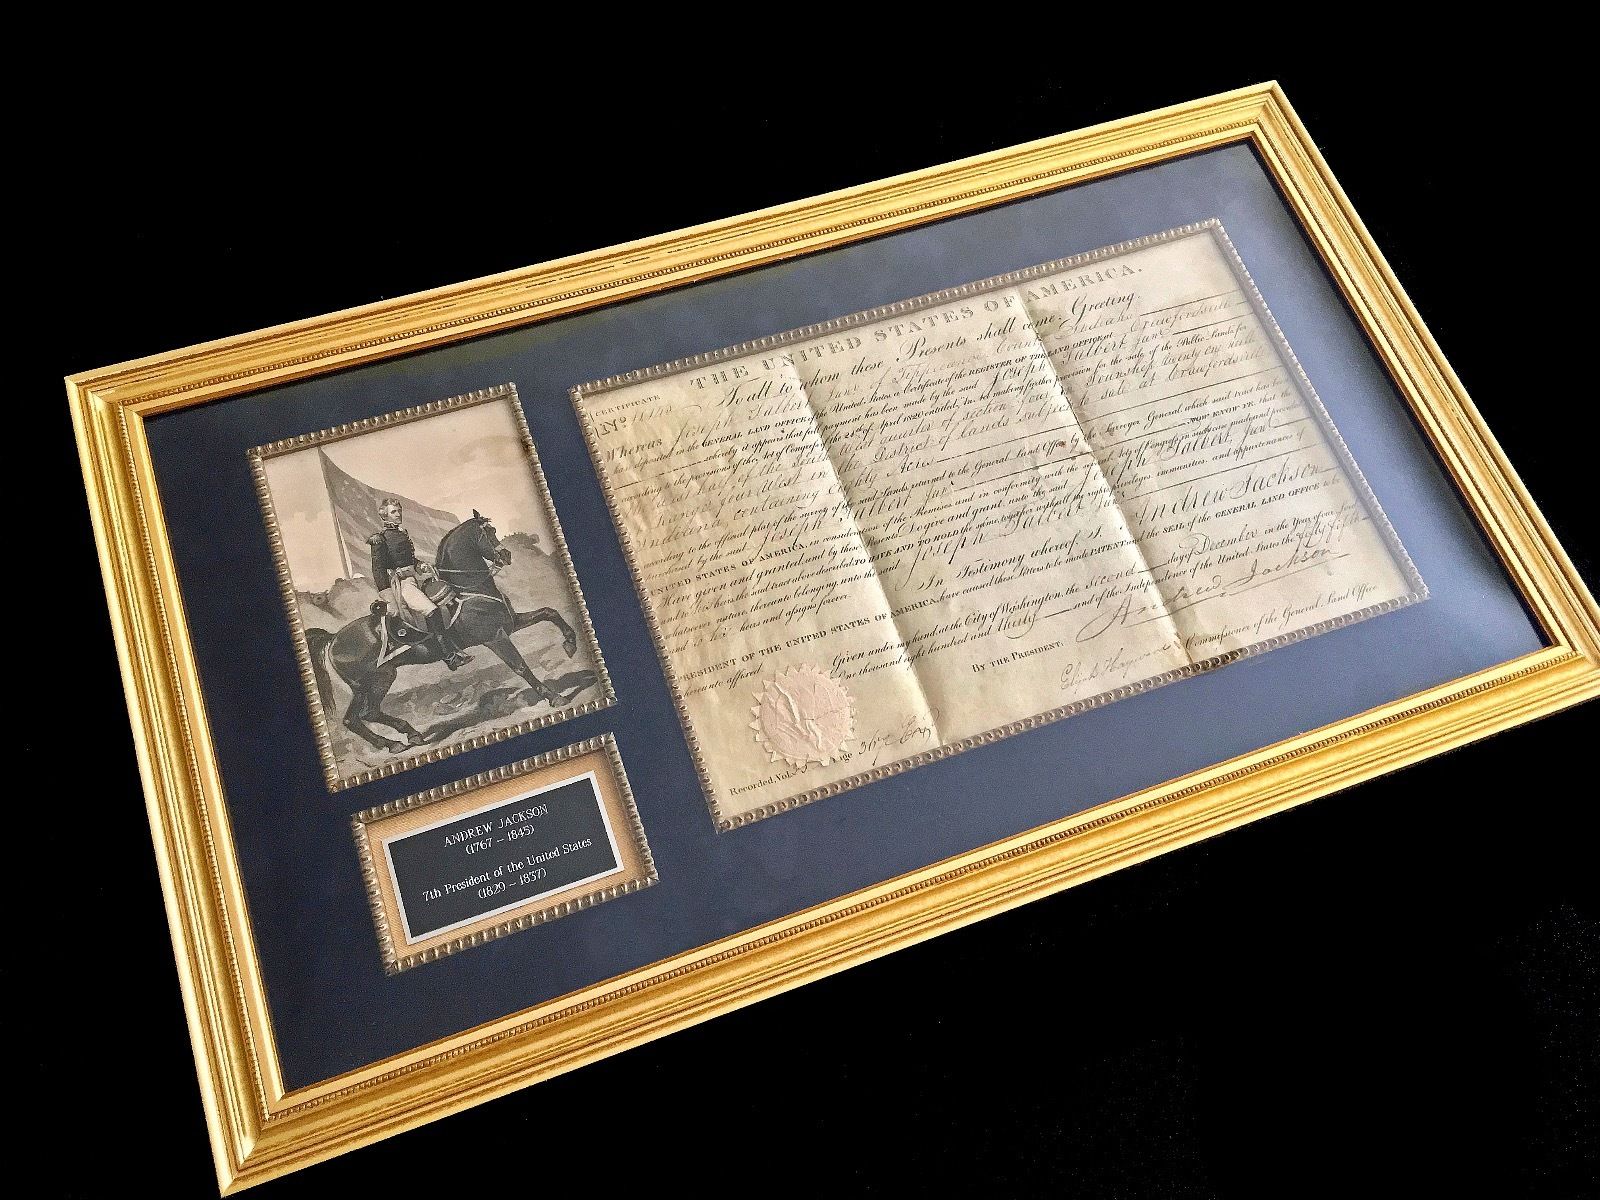 THE UNITED STATES OF AMERICA.
CERTIFICATE
No.
To all to whom these Presents shall come, Greeting.
Whereas Joseph Talbert Junr of Tippecanoe County Indiana
has deposited in the GENERAL LAND OFFICE of the United States, a Certificate of the REGISTER OF THE LAND OFFICE at Crawfordsville
whereby it appears that full payment has been made by the said Joseph Talbert Junr
according to the provisions of the Act of Congress of the 24th of April, 1820, entitled "An Act making further provision for the sale of the Public Lands," for
the East half of the South West quarter of section four in Township twenty one North
Range four West in the District of Lands subject to sale at Crawfordsville
Indiana, containing eighty Acres
according to the official plat of the survey of the said Lands, returned to the General Land Office by the Surveyor General, which said tract has been
purchased by the said Joseph Talbert Junr NOW KNOW YE, that the
UNITED STATES OF AMERICA, in consideration of the Premises, and in conformity with the several Acts of Congress, in such case made and provided,
Have given and granted, and by these Presents Do give and grant, unto the said Joseph Talbert Junr
and to his heirs, the said tract above described: TO HAVE AND TO HOLD the same, together with all the rights, privileges, immunities, and appurtenances of
whatsoever nature, thereunto belonging, unto the said Joseph Talbert Junr
and to his heirs and assigns forever.
In Testimony whereof, I, Andrew Jackson
PRESIDENT OF THE UNITED STATES OF AMERICA, have caused these Letters to be made PATENT, and the SEAL of the GENERAL LAND OFFICE to be
hereunto affixed.
Given under my hand at the City of Washington, the second day of December in the Year of our Lord
one thousand eight hundred and thirty and of the Independence of the United States the fifty fifth
BY THE PRESIDENT: Andrew Jackson
Elijah Hayward Commissioner of the General Land Office
Recorded, Vol. Page
ANDREW JACKSON
(1767 – 1845)
7th President of the United States
(1829 – 1837)